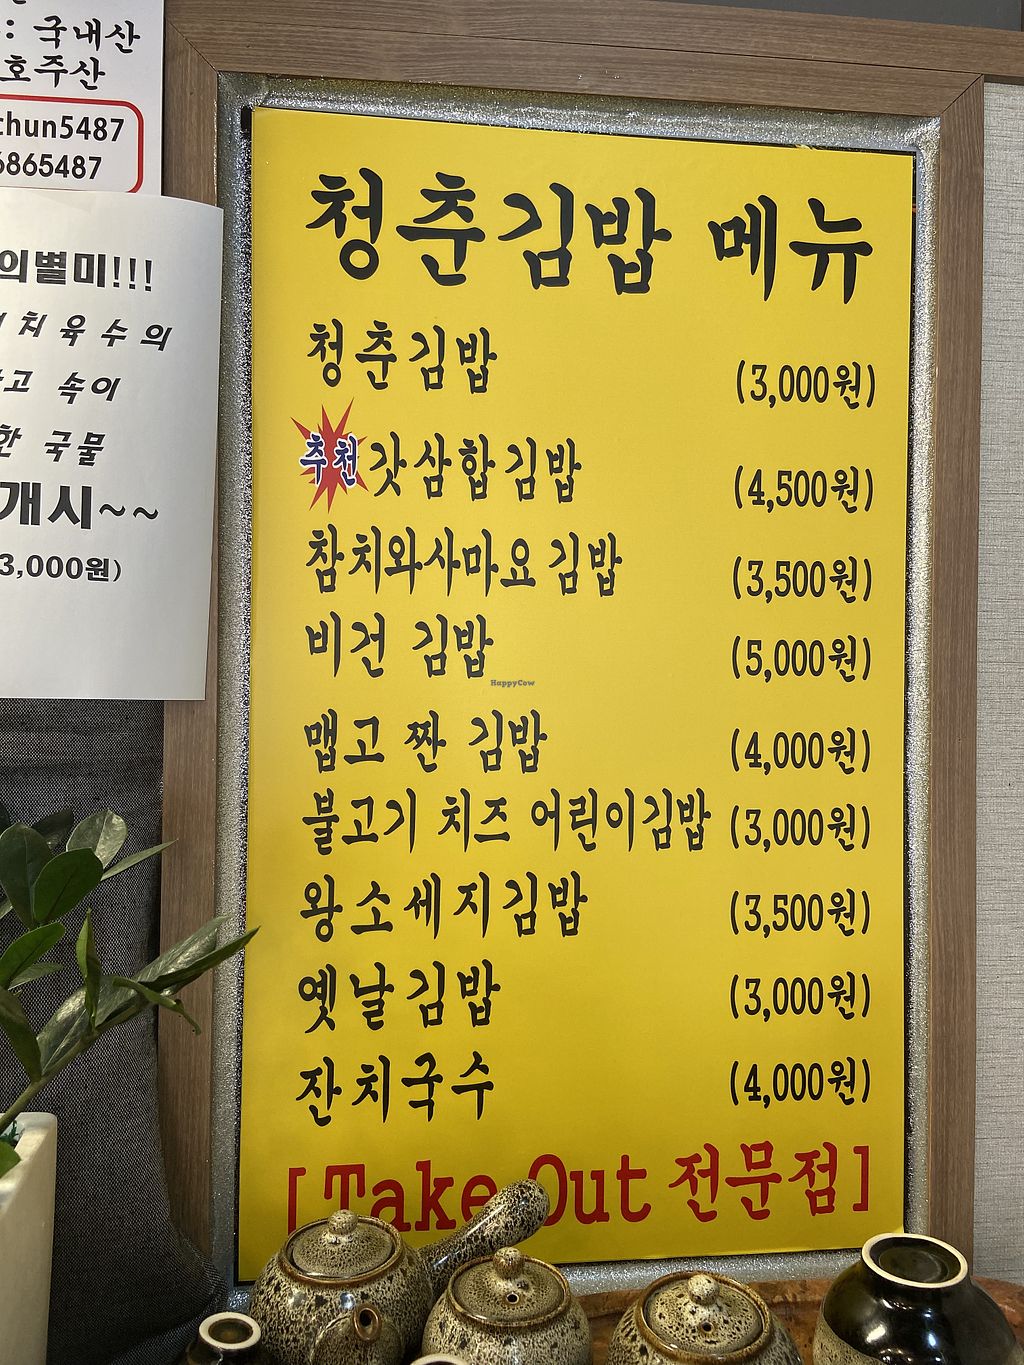 : 국내산
호주산
chun5487
6865487
의별미!!!
치육수의
고 속이
한 국물
개시~~
3,000원)
청춘김밥 메뉴
청춘김밥 (3,000원)
추천 갓삼합김밥 (4,500원)
참치와사마요김밥 (3,500원)
비건 김밥 (5,000원)
HappyCow
맵고 짠 김밥 (4,000원)
불고기 치즈 어린이김밥 (3,000원)
왕소세지김밥 (3,500원)
옛날김밥 (3,000원)
잔치국수 (4,000원)
[Take Out 전문점]